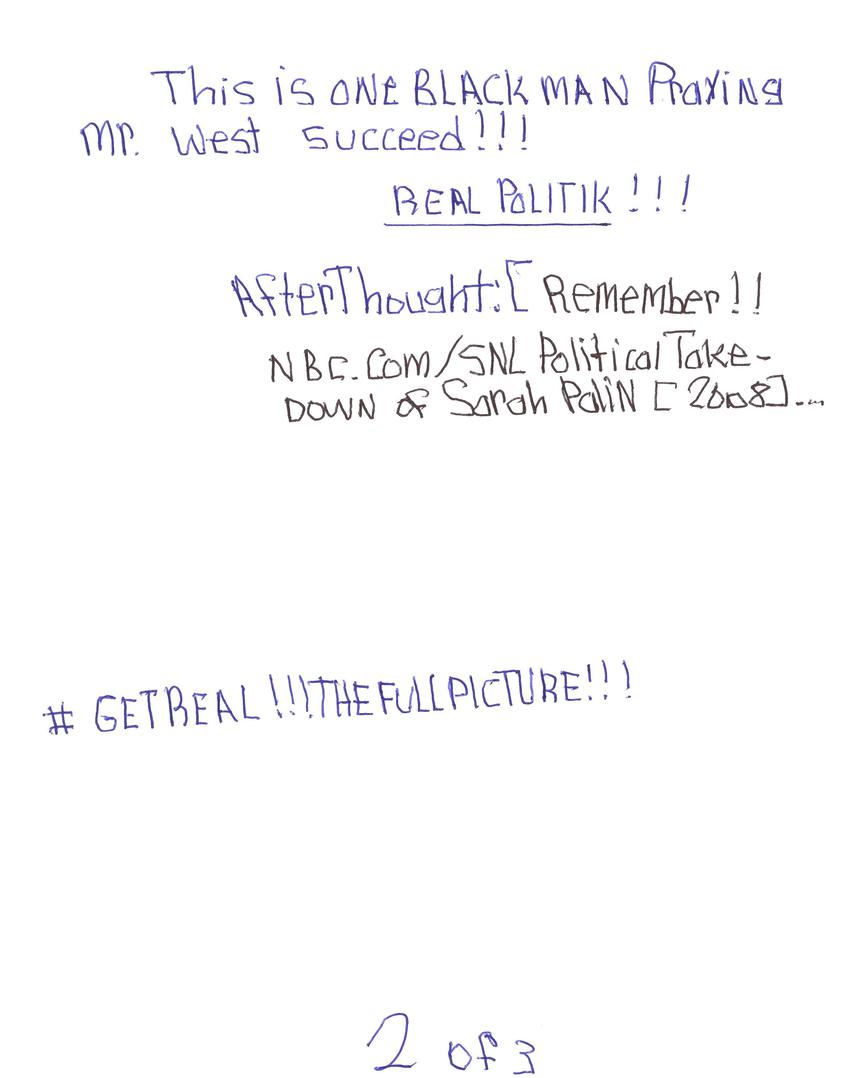 This is ONE BLACK MAN Praying
Mr. West succeed!!!
REAL POLITIK!!!
AfterThought:[ Remember!!
NBC.Com/SNL Political Take-
DOWN of Sarah Palin [2008]....
# GETREAL!!!THEFULLPICTURE!!!
2 of 3